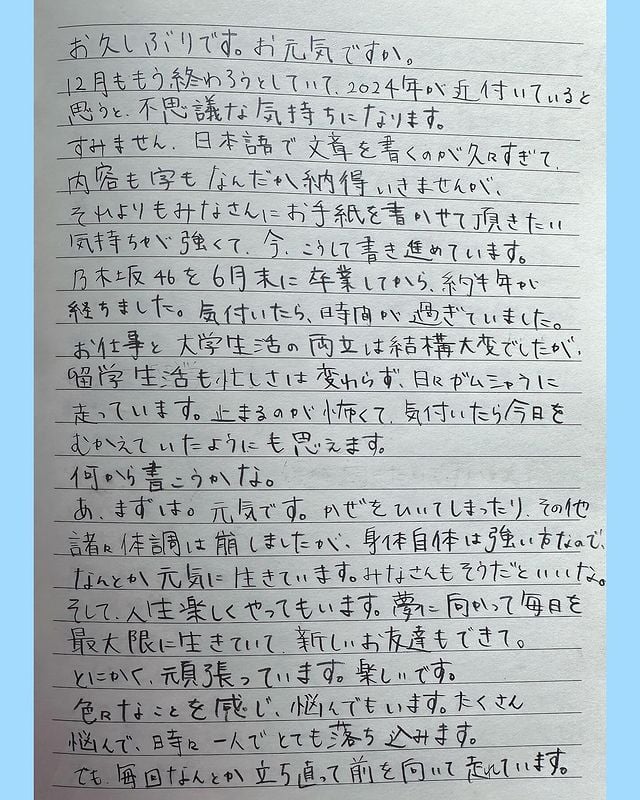 お久しぶりです。お元気ですか。
12月ももう終わろうとしていて、2024年が近付いていると
思うと、不思議な気持ちになります。
すみません、日本語で文章を書くのが久々すぎて、
内容も字もなんだか納得いきませんが、
それよりもみなさんにお手紙を書かせて頂きたい
気持ちが強くて、今、こうして書き進めています。
乃木坂46を6月末に卒業してから、約半年が
経ちました。気付いたら、時間が過ぎていました。
お仕事と大学生活の両立は結構大変でしたが、
留学生活も忙しさは変わらず、日々ガムシャラに
走っています。止まるのが怖くて、気付いたら今日を
むかえていたようにも思えます。
何から書こうかな。
あ、まずは。元気です。かぜをひいてしまったり、その他
諸々体調は崩しましたが、身体自体は強い方なので、
なんとか元気に生きています。みなさんもそうだといいな。
そして、人生楽しくやってもいます。夢に向かって毎日を
最大限に生きていて、新しいお友達もできて。
とにかく、頑張っています。楽しいです。
色々なことを感じ、悩んでもいます。たくさん
悩んで、日時々一人でとても落ち込みます。
でも、毎回なんとか立ち直って前を向いて走れています。